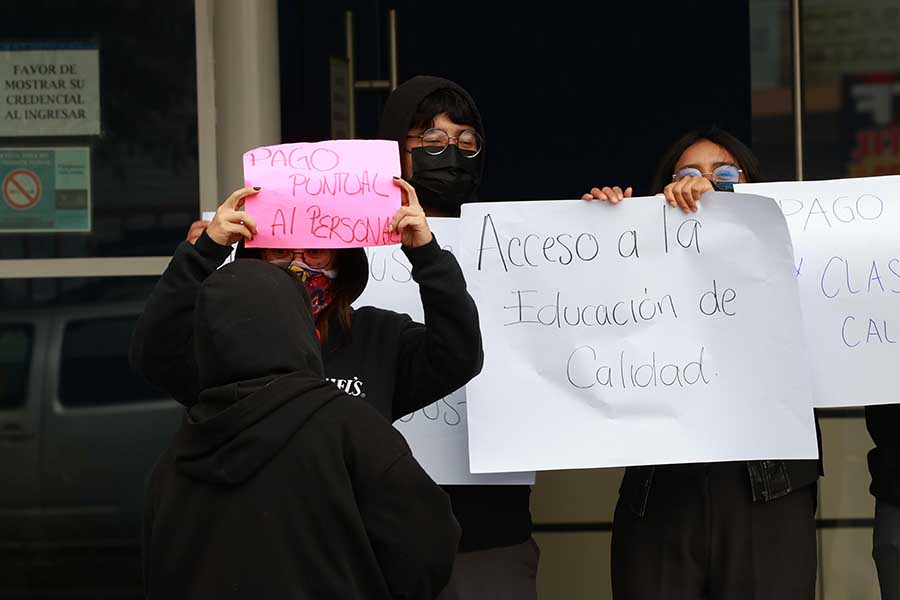 FAVOR DE
MOSTRAR SU
CREDENCIAL
AL INGRESAR
PAGO
PUNTUAL
Al PERSONAL
Acceso a la
Educación De
Calidad.
PAGO
Y CLAS
CAL